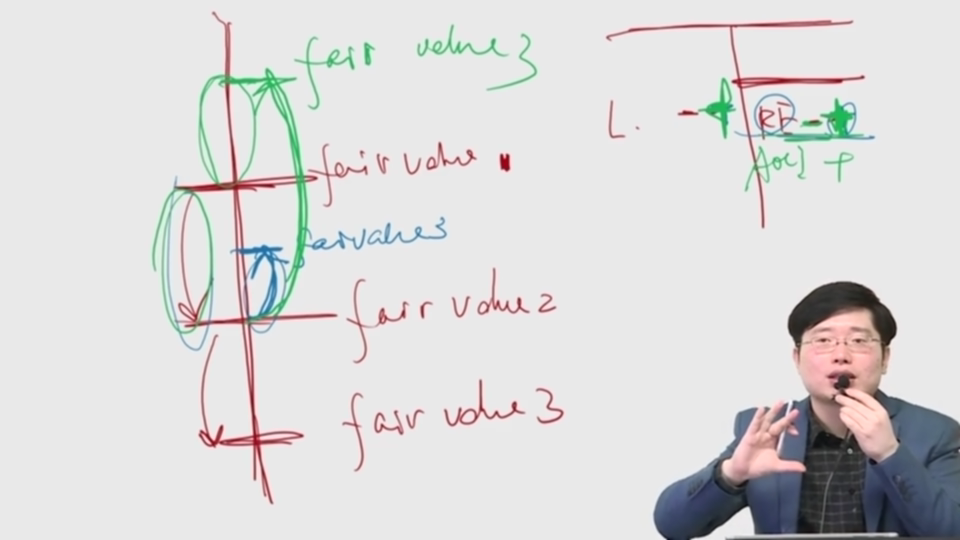 fair value 3
fair value
fair value 3
fair value 2
fair value 3
L. - RE -
AOCI +